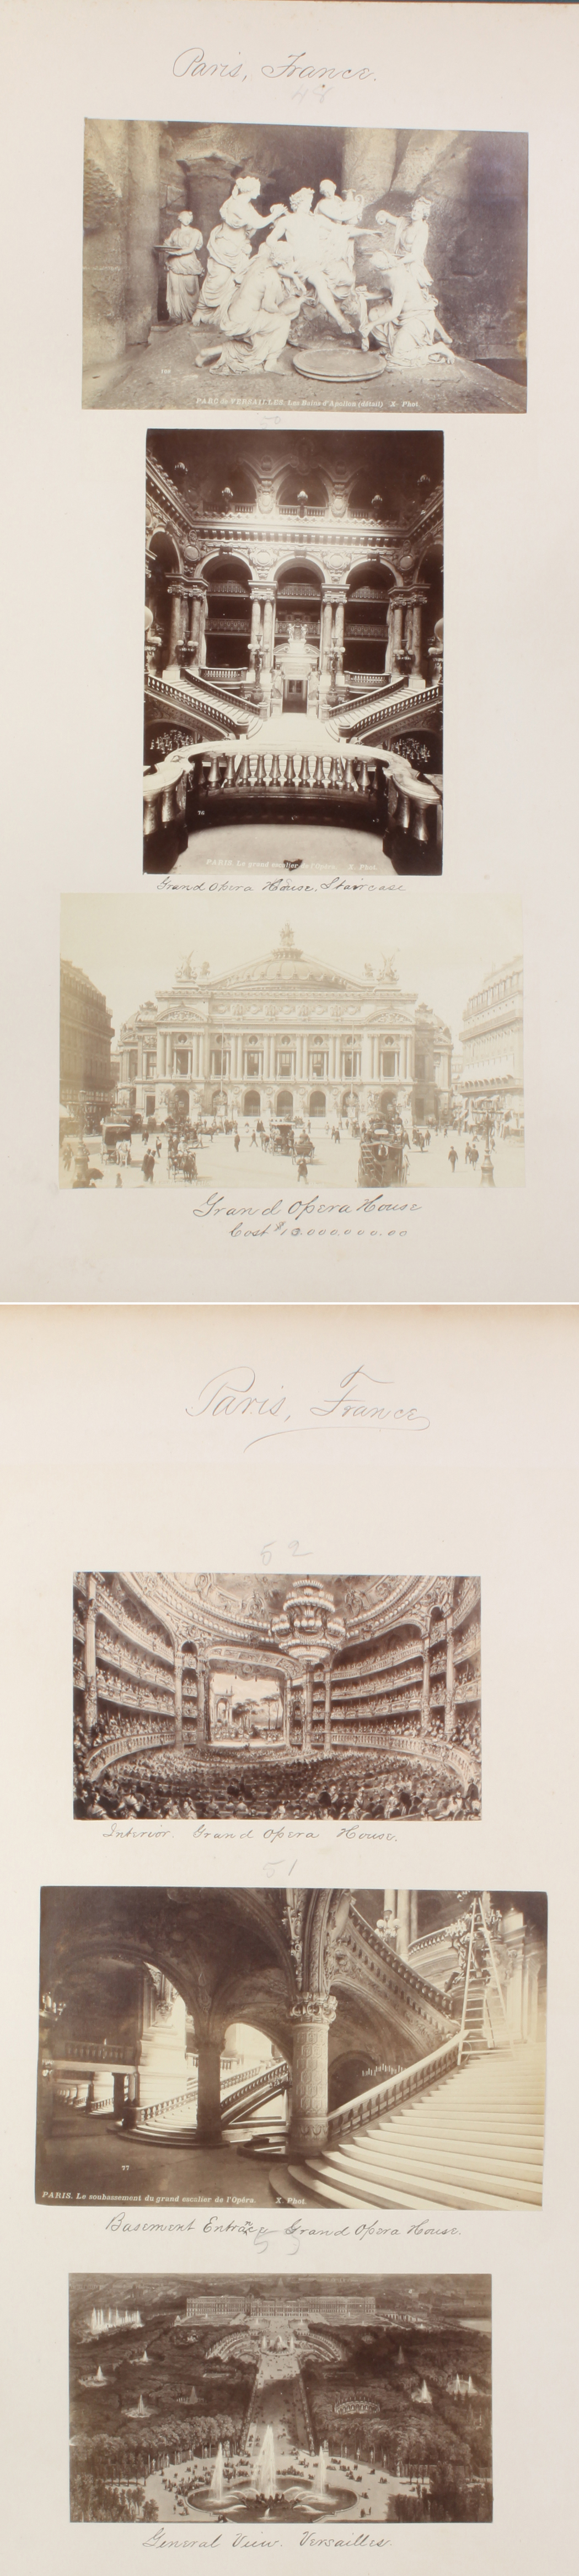 Paris, France.
48
108
PARC de VERSAILLES. Les Bains d'Apollon (détail) X. Phot.
50
76
PARIS. Le grand escalier de l'Opéra. X. Phot.
Grand Opera House. Staircase
Grand Opera House
Cost $10.000.000.00
Paris, France
52
Interior. Grand Opera House.
51
77
PARIS. Le soubassement du grand escalier de l'Opéra. X. Phot.
Basement Entrance Grand Opera House.
53
General View. Versailles.